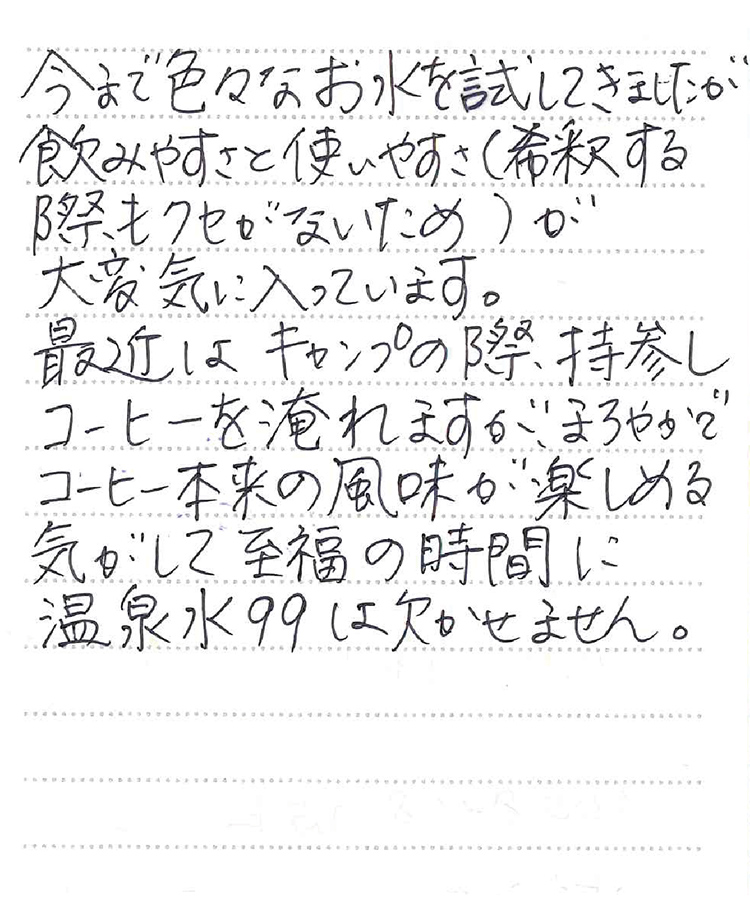 今まで色々なお水を試してきましたが
飲みやすさと使いやすさ(希釈する
際、もクセがないため)が
大変気に入っています。
最近は キャンプの際、持参し
コーヒーを淹れますが、まろやかで
コーヒー本来の風味が楽しめる
気がして至福の時間に
温泉水99は欠かせません。